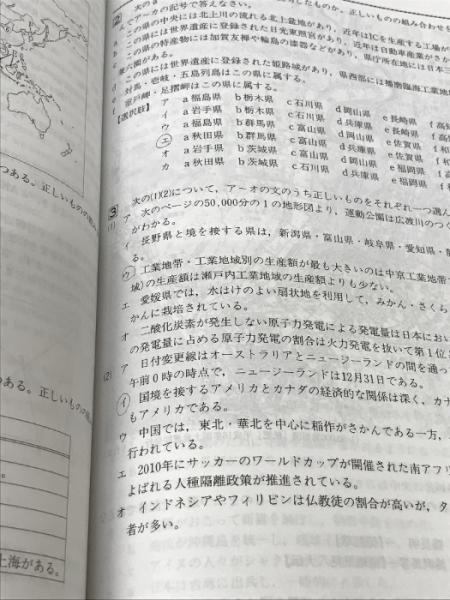 んでア〜カの記号で答えなさい。
a この県の中央には北上川の流れる北上盆地があり，近年ICを生産する工場が
b この県には世界遺産に登録された日光東照宮があり，近年は自動車産業がさか
c この県の特産物には加賀友禅や輪島の漆器などがあり，県庁所在地には日本三
兼六園がある。
d この県には世界遺産に登録された姫路城があり，県西部には播磨臨海工業地
対馬・壱岐・五島列島はこの県に属する。
室戸岬・足摺岬はこの県に属する。
【選択肢】
ア a福島県 b栃木県 c石川県 d岡山県 e長崎県
イ a岩手県 b栃木県 c石川県 d兵庫県 e長崎県
ウ a福島県 b群馬県 c富山県 d岡山県 e佐賀県
エ a秋田県 b群馬県 c富山県 d兵庫県 e佐賀県
オ a岩手県 b茨城県 c富山県 d岡山県 e福岡県
カ a秋田県 b茨城県 c石川県 d兵庫県 e福岡県
3 次の(1)(2)について，ア〜オの文のうち正しいものをそれぞれ一つ選ん
(1) ア 次のページの50,000分の1の地形図より，運動公園は広渡川のつく
がわかる。
イ 長野県と境を接する県は，新潟県・富山県・岐阜県・愛知県・
る。
ウ 工業地帯・工業地域別の生産額が最も大きいのは中京工業地帯
域）の生産額は瀬戸内工業地域の生産額よりも少ない。
エ 愛媛県では，水はけのよい扇状地を利用して，みかん・さくら
かんに栽培されている。
オ 二酸化炭素が発生しない原子力発電による発電量は日本にお
の発電量に占める原子力発電の割合は火力発電を抜いて第1位
(2) ア 日付変更線はオーストラリアとニュージーランドの間を通っ
午前0時の時点で，ニュージーランドは12月31日である。
イ 国境を接するアメリカとカナダの経済的な関係は深く，カナ
もアメリカである。
ウ 中国では，東北・華北を中心に稲作がさかんである一方，
行われている。
エ 2010年にサッカーのワールドカップが開催された南アフリ
よばれる人種隔離政策が推進されている。
オ インドネシアやフィリピンは仏教徒の割合が高いが，タ
者が多い。
つある。正しいものの
つある。正しいものの
上海がある。